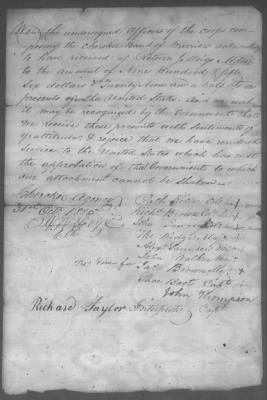 We the undersigned Officers of the corps com
posing the Cherokee Band of Warriors acknowledge
to have received of Return J. Meigs
to the amount of Nine Hundred & fifty
Six dollars & Twenty Nine and a half Cts
presents of the United States. And we wish
it may be recognized by the Government that
we receive these presents with sentiments of
gratitude & rejoice that we have rendered
service to the United States which has met
the approbation of the Government to which
our attachment cannot be shaken
Cherokee Agency
31st Octr
Path Killer Colo
Richd Brown
John
The Ridge Majr
Alexr Saunders
John Walker Majr
Jas Brown
Capt
John Thompson
Richard Taylor Interpreter Capt